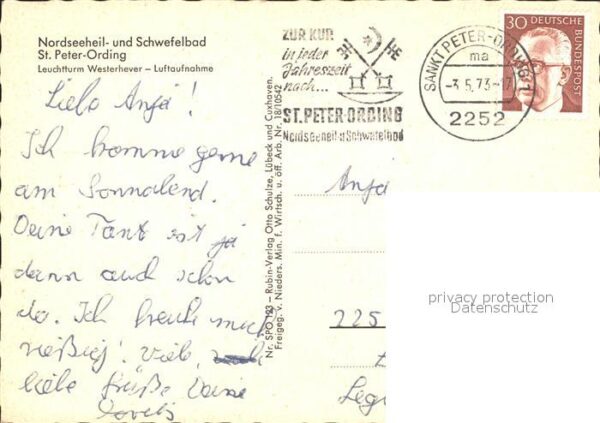 Nordseeheil- und Schwefelbad
St. Peter-Ording
Leuchtturm Westerhever – Luftaufnahme
Liebe Anja!
Ich komme gerne
am Sonnabend.
Deine Tant ist ja
dann auch schon
da. Ich freue mich
rießig! Viele
liebe Grüße Deine
Nr. SPO 193 – Rubin-Verlag Otto Schulze, Lübeck und Cuxhaven.
Freigeg. v. Nieders. Min. f. Wirtsch. u. öff. Arb. Nr. 18/10542
ZUR KUR
in jeder
Jahreszeit
nach...
ST. PETER-ORDING
Nordseeheil-u Schwefelbad
SANKT PETER-ORDING 1
ma
-3.5.73-17
2252
30 DEUTSCHE
BUNDESPOST
Anja
225
privacy protection
Datenschutz